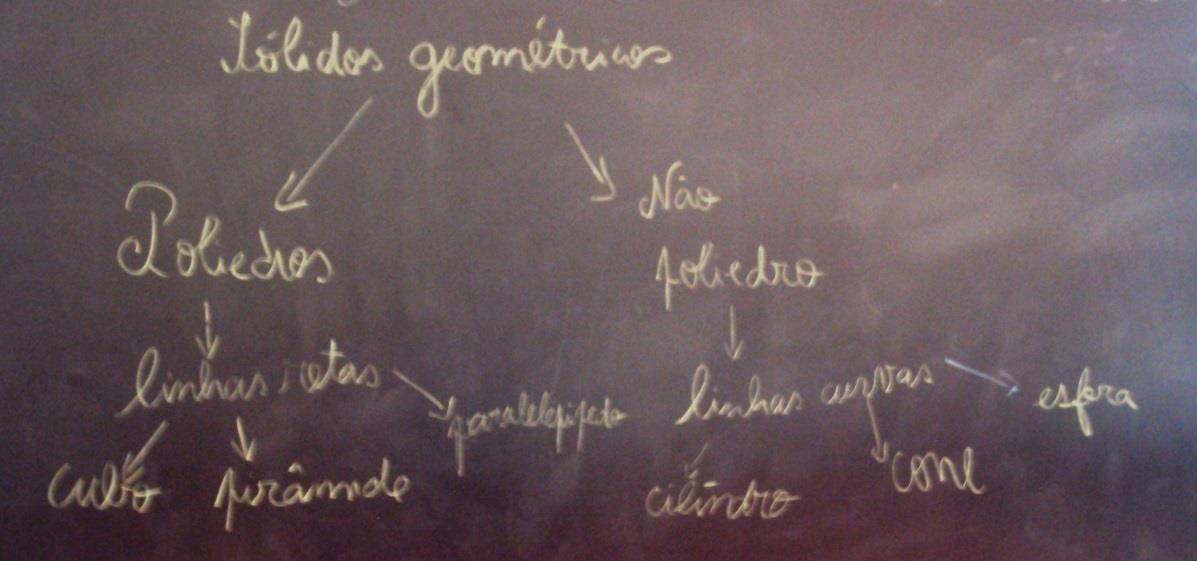 Sólidos geométricos
Poliedros
Não
poliedro
linhas retas
paralelepipeto
linhas curvas
esfera
cubo
pirâmide
cilindro
cone